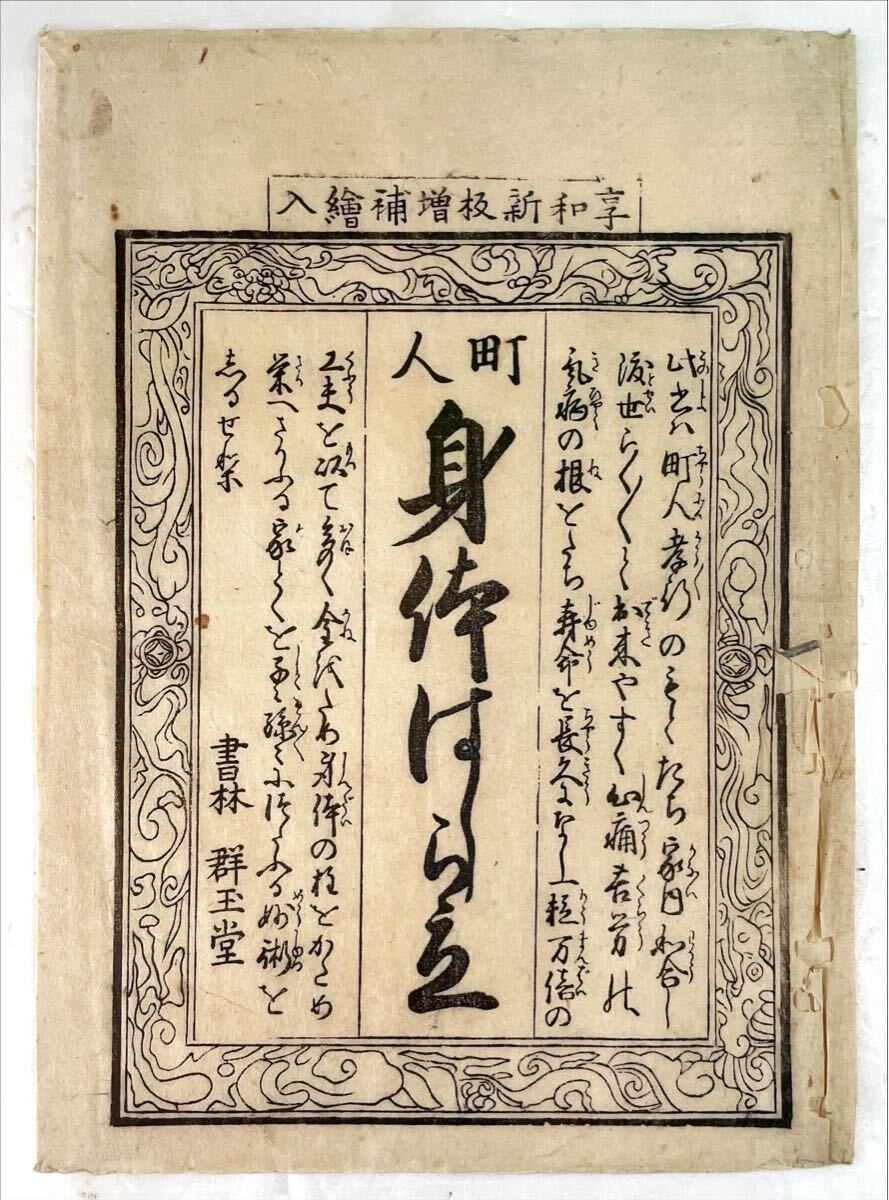 享和新板増補繪入
此書ハ町人孝行の たち家内和合し
渡世らく〳〵と出来やすく心痛苦労
気病の根をたち寿命を長久になし一粒万倍の
町人
身体はしら立
工夫を以て多く金銀ため身体の柱をかため
栄へ る家とくを子々孫々につたふる妙術を
しるせ
書林 群玉堂